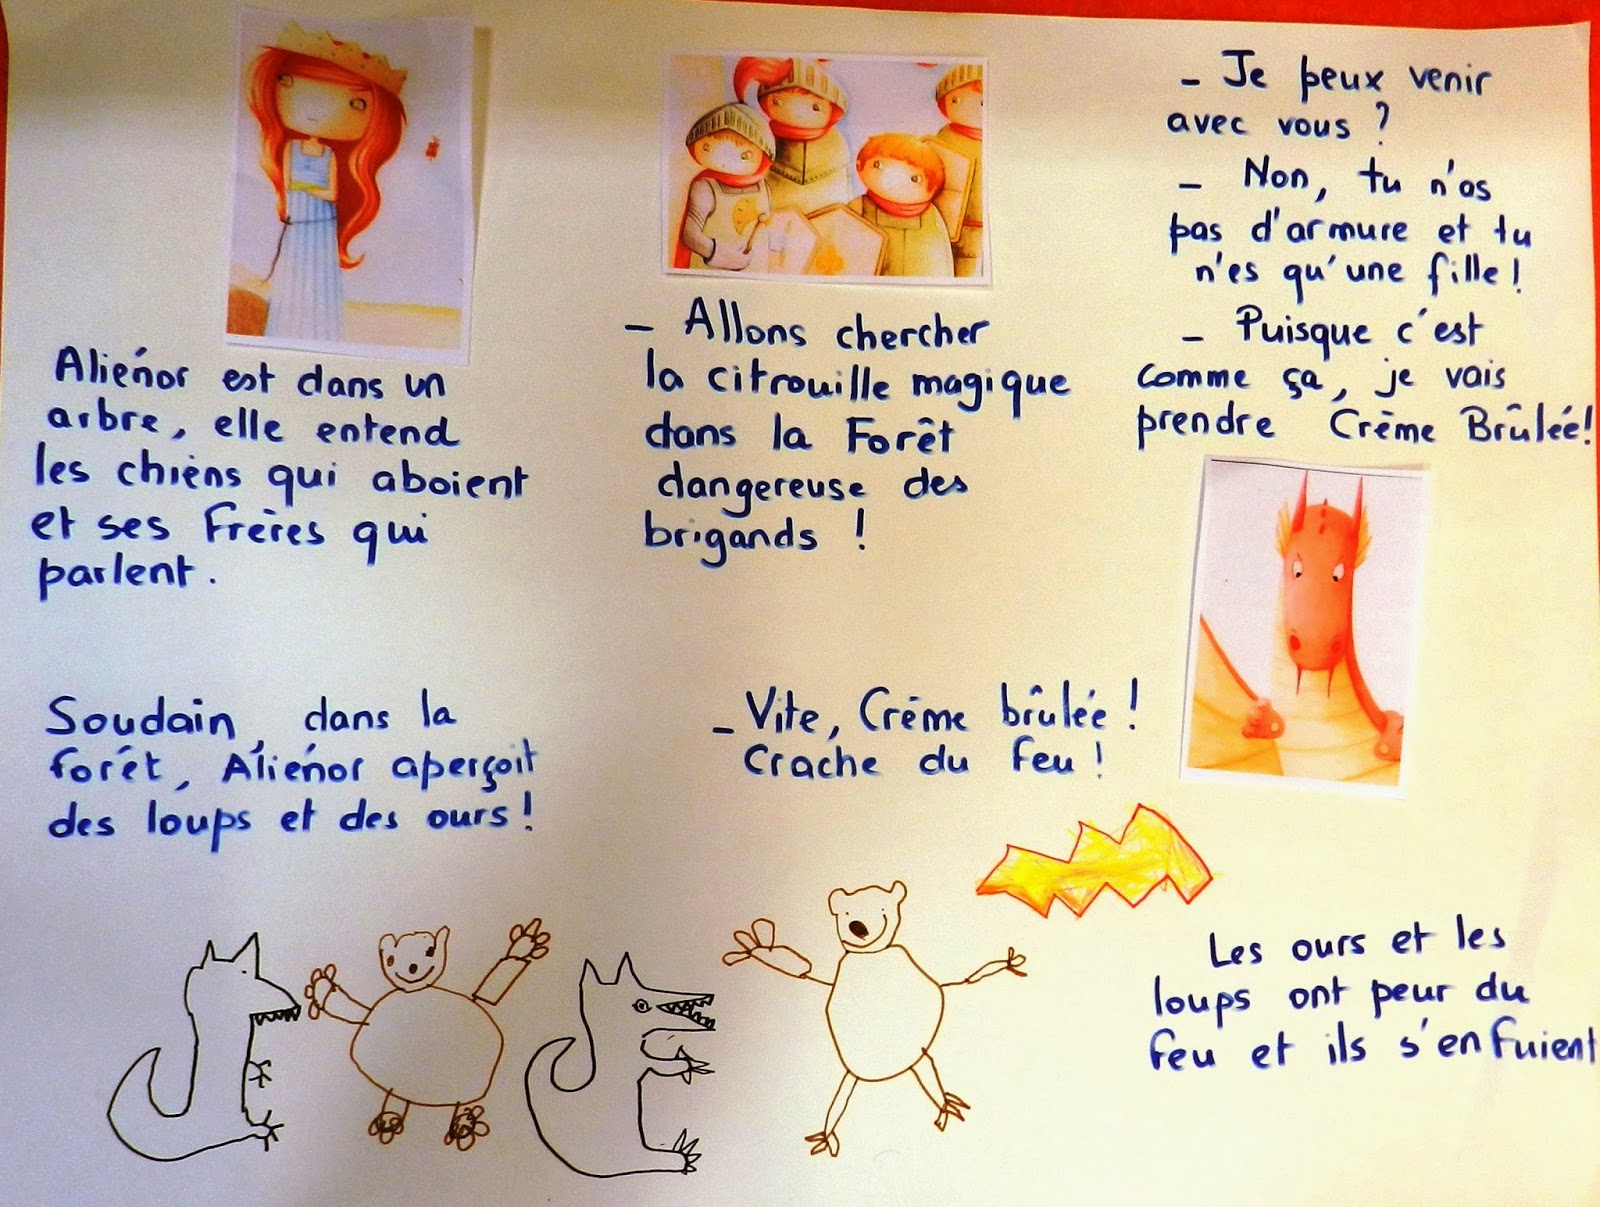 Aliénor est dans un
arbre, elle entend
les chiens qui aboient
et ses Frères qui
parlent.
– Allons chercher
la citrouille magique
dans la Forêt
dangereuse des
brigands !
– Je peux venir
avec vous ?
– Non, tu n'as
pas d'armure et tu
n'es qu'une fille !
– Puisque c'est
comme ça, je vais
prendre Crème Brûlée!
Soudain, dans la
forêt, Aliénor aperçoit
des loups et des ours !
– Vite, Crème brûlée !
Crache du feu !
Les ours et les
loups ont peur du
feu et ils s'enfuient